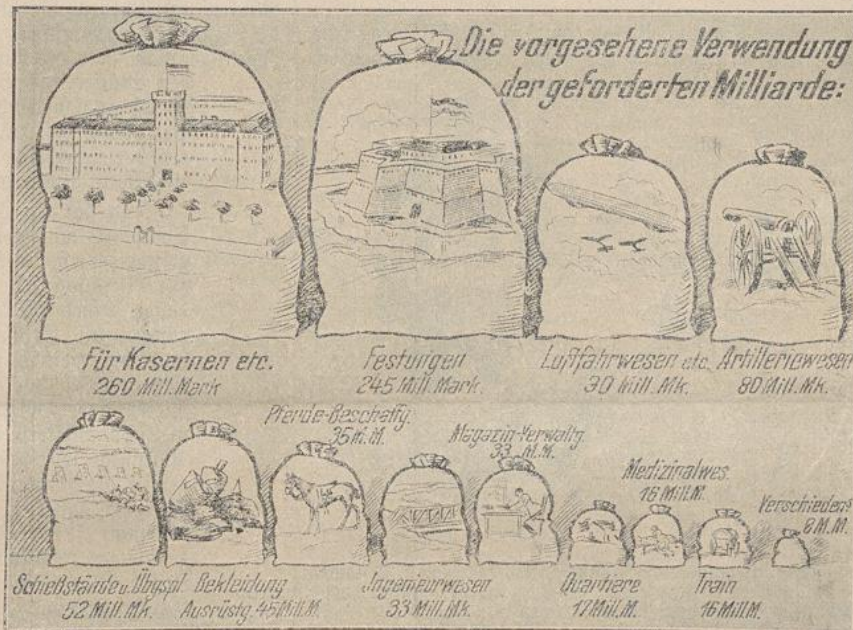 Die vorgesehene Verwendung
der geforderten Milliarde:
Für Kasernen etc.
260 Mill. Mark
Festungen
245 Mill. Mark.
Luftfahrwesen etc.
30 Mill. Mk.
Artilleriewesen
80 Mill. Mk.
Pferde-Beschaffg.
35 M. M.
Magazin-Verwaltg.
33 M. M.
Medizinalwes.
16 Mill. M.
Verschiedens
8 M. M.
Schießstände u. Übgspl.
52 Mill. Mk.
Bekleidung
Ausrüstg. 45 Mill. M.
Ingenieurwesen
33 Mill. Mk.
Quartiere
17 Mill. M.
Train
16 Mill. M.